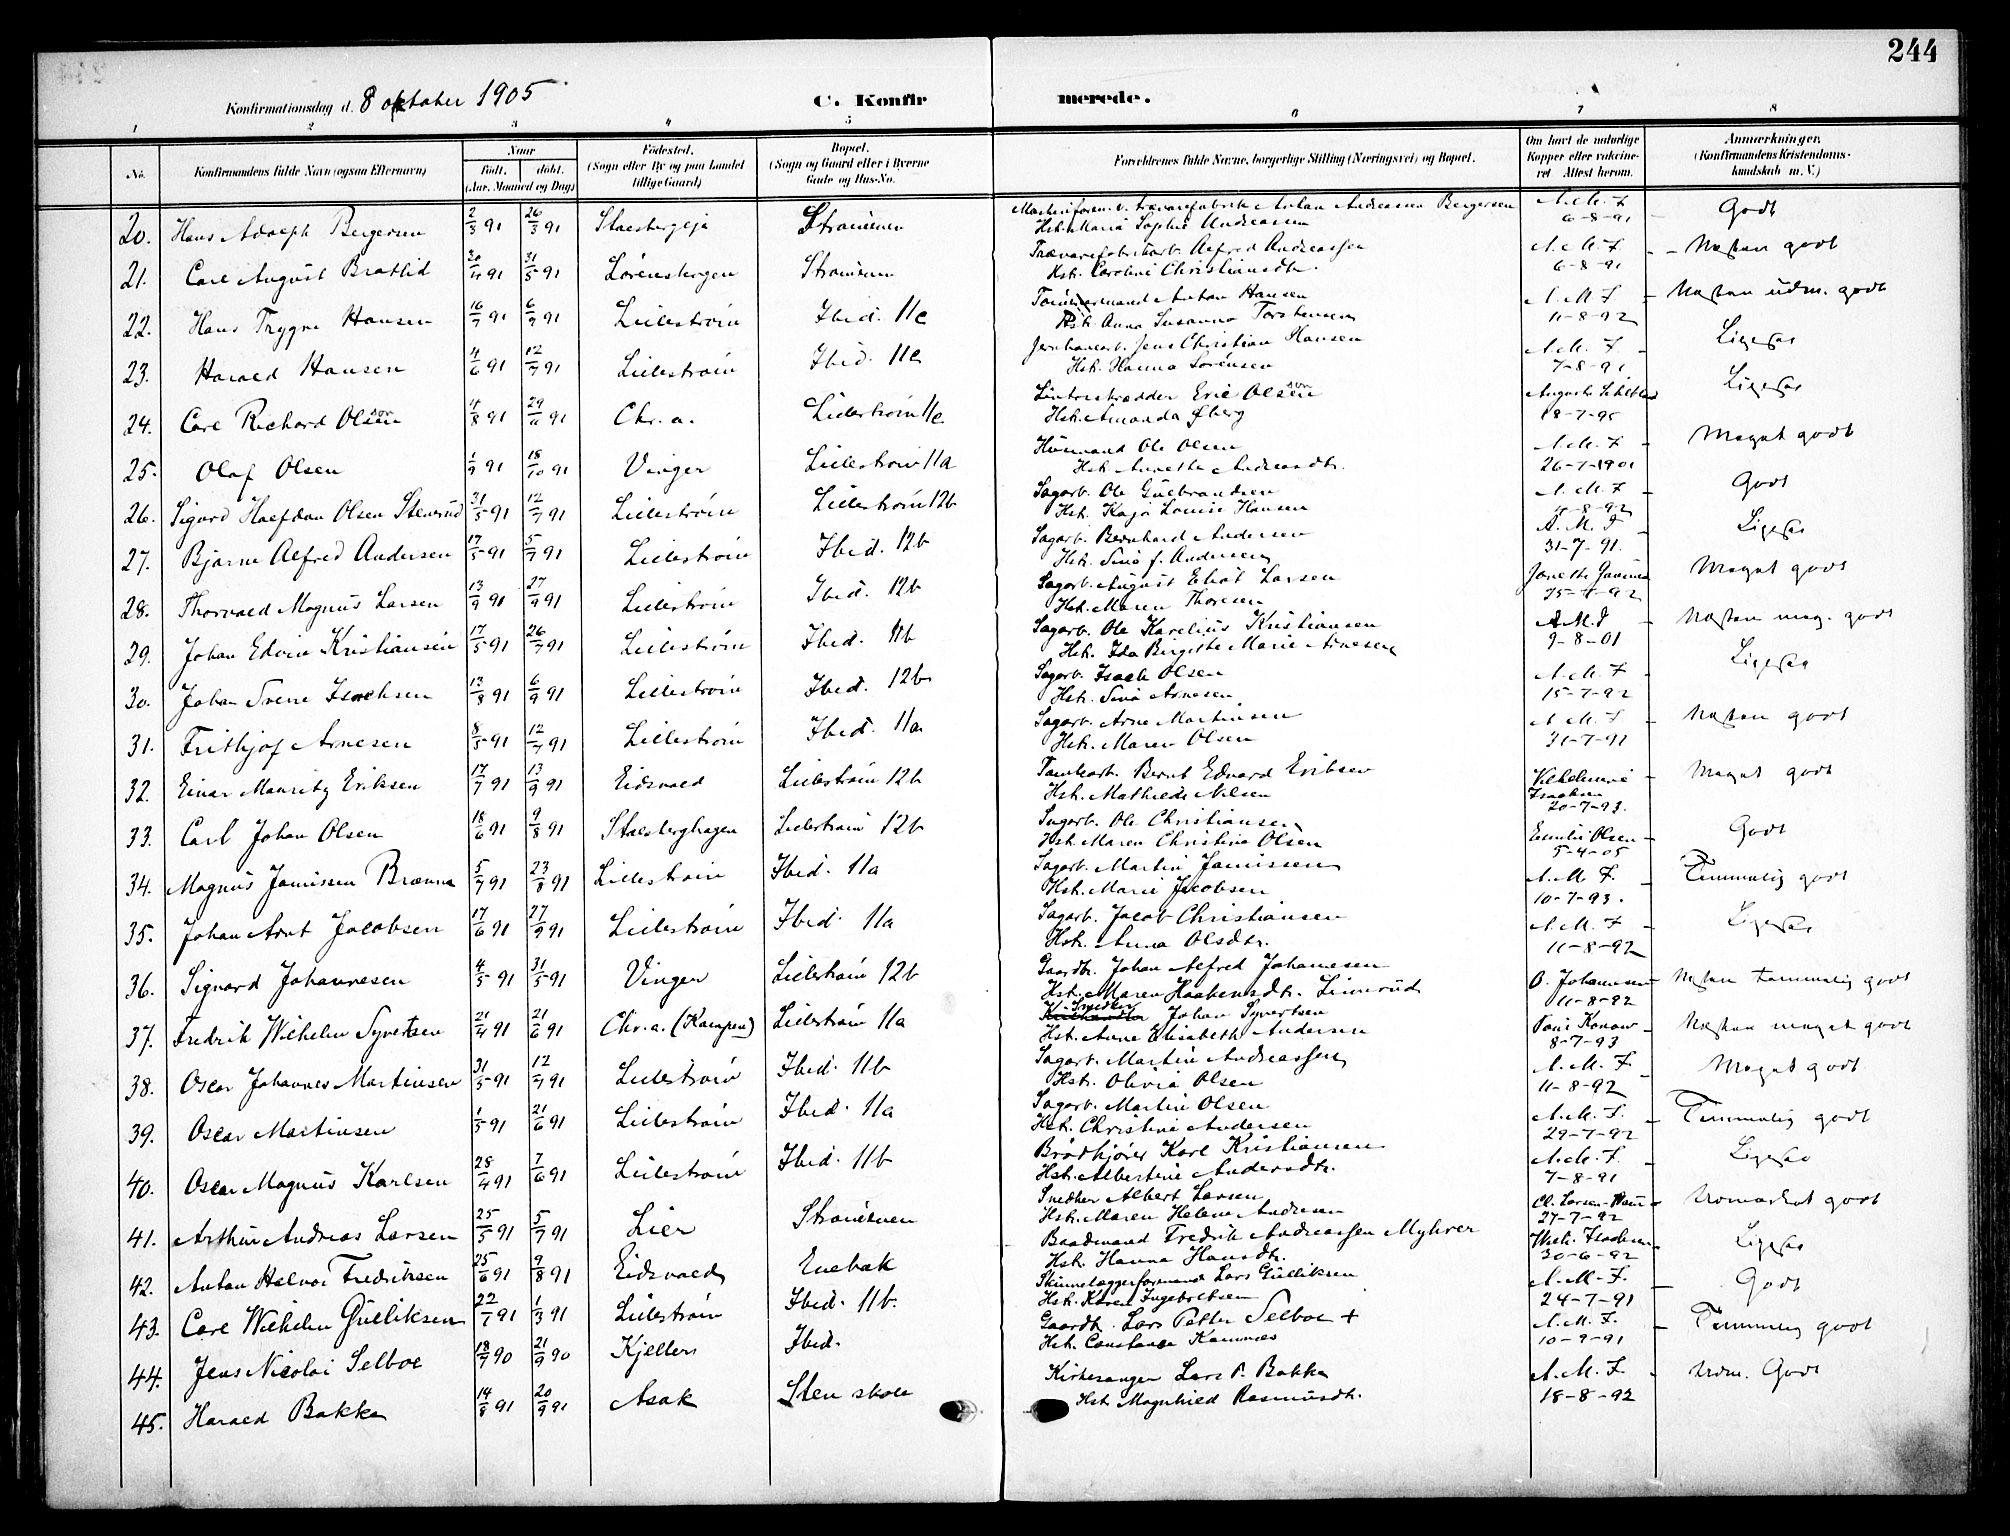 244
Konfirmationsdag d. 8 oktober 1905 C. Konfirmerede.
1 2 3 4 5 6 7 8
No. Konfirmandens fulde Navn (ogsaa Efternavn) Naar født, døbt. (Aar, Maaned og Dag) Fødested. (Sogn eller By og paa Landet tillige Gaard) Bopæl. (Sogn og Gaard eller i Byerne Gade og Hus-No. Forældrenes fulde Navne, borgerlige Stilling (Næringsvei) og Bopæl. Om havt de naturlige Kopper eller vakcineret Attest herom. Anmærkninger. (Konfirmandens Kristendomskundskab m. V.)
20. Hans Adolph Bergersen 2/3 91 26/3 91 Strømmen Anton Andreasen Bergersen A. M. F. 6-8-91 Godt
Hst. Maria Sophie Andreassen
21. Carl August Brattlid 20/4 91 31/5 91 Lørensbergen Strømmen Trævarefabrikarb. Alfred Andreassen A. M. F. 6-8-91 Næsten godt
Hst. Caroline Christiansdtr.
22. Hans Trygve Hansen 16/7 91 6/9 91 Lillestrøm Ibid. 11c Tømmermand Anton Hansen A. M. F. 11-8-92 Næsten udm. godt
Hst. Anna Susanna Torstensen
23. Harald Hansen 4/6 91 12/7 91 Lillestrøm Ibid. 11c Jens Christian Hansen A. M. F. 7-8-91 Ligesaa
Hst. Hanna Sørensen
24. Carl Richard Olsson 4/8 91 Chr.a. Lillestrøm 11c Eric Olsson 18-7-95 Ligesaa
Hst. Amanda Øberg
25. Olaf Olsen 1/9 91 18/10 91 Vinger Lillestrøm 11a Husmand Ole Olsen A. M. F. 26-7-1901 Meget godt
Hst. Annette Andreasdtr.
26. Sigurd Halfdan Olsen Stensrud 31/5 91 12/7 91 Lillestrøm Lillestrøm 12b Sagarb. Ole Gulbrandsen A. M. F. 11-8-92 Godt
Hst. Kaja Lovise Hansen
27. Bjarne Alfred Andersen 17/5 91 5/7 91 Lillestrøm Ibid. 12b Sagarb. Bernhard Andersen A. M. F. 31-7-91. Ligesaa
Hst. Sina f. Andersen
28. Thorvald Magnus Larsen 13/9 91 27/9 91 Lillestrøm Ibid. 12b Sagarb. August Larsen Meget godt
Hst. Maren Thoresen
29. Johan Edvin Kristiansen 17/5 91 26/7 91 Lillestrøm Ibid. 11b Sagarb. Ole Karelius Kristiansen A. M. F. 9-8-01 Næsten meg. godt
Hst. Ida Birgitte Marie Arnesen
30. Johan Sverre Isachsen 13/8 91 6/9 91 Lillestrøm Ibid. 12b Sagarb. Isach Olsen A. M. F. 15-7-92 Ligesaa
Hst. Sina Arnesen
31. Frithjof Arnesen 8/5 91 12/7 91 Lillestrøm Ibid. 11a Sagarb. Arne Martinsen A. M. F. 31-7-91 Næsten godt
Hst. Maren Olsen
32. Einar Mauritz Eriksen 17/7 91 13/9 91 Eidsvold Lillestrøm 12b Tomtearb. Bernt Edvard Eriksen Vilhelmine Isaksen 20-7-93. Meget godt
Hst. Mathilde Nilsen
33. Carl Johan Olsen 18/6 91 9/8 91 Stalsberghagen Lillestrøm 12b Sagarb. Ole Christiansen Emilie Olsen 5-4-05 Godt
Hst. Maren Christine Olsen
34. Magnus Jamissen Brænna 5/7 91 23/8 91 Lillestrøm Ibid. 11a Sagarb. Martin Jamissen A. M. F. 10-7-93. Temmelig godt
Hst. Marie Jacobsen
35. Johan Arnt Jacobsen 17/6 91 27/9 91 Lillestrøm Ibid. 11a Sagarb. Jacob Christiansen A. M. F. 11-8-92 Ligesaa
Hst. Anna Olsdtr.
36. Signard Johannesen 4/5 91 31/5 91 Vinger Lillestrøm 12b Gaardbr. Johan Alfred Johannesen O. Johannesen 11-8-92 Næsten temmelig godt
Hst. Maren Haakensdtr. Linnerud
37. Fredrik Wilhelm Syvertsen 21/4 91 21/6 91 Chr.a. (Kampen) Lillestrøm 11a Snedker Johan Syvertsen 8-7-93 Næsten meget godt
Hst. Anne Elisabeth Andersen
38. Oscar Johannes Martinsen 31/5 91 12/7 91 Lillestrøm Ibid. 11b Sagarb. Martin Andreassen A. M. F. 11-8-92 Meget godt
Hst. Olivia Olsen
39. Oscar Martinsen 1/5 91 21/6 91 Lillestrøm Ibid. 11a Sagarb. Martin Olsen A. M. F. 29-7-92 Temmelig godt
Hst. Christine Andersen
40. Oscar Magnus Karlsen 28/4 91 7/6 91 Lillestrøm Ibid. 11b Brødkjører Karl Kristiansen A. M. F. 7-8-91 Ligesaa
Hst. Albertine Andersdtr.
41. Arthur Andreas Larsen 25/5 91 5/7 91 Lier Strømmen Snedker Albert Larsen 27-7-92 Udmærket godt
Hst. Maren Helene Andersen
42. Anton Halvor Fredriksen 25/6 91 9/8 91 Eidsvold Enebak Baadmand Fredrik Andreassen Myhrer 30-6-92 Ligesaa
Hst. Hanna Hansdtr.
43. Carl Wilhelm Gulliksen 22/1 91 1/3 91 Lillestrøm Ibid. 11b. Skinnelæggerformand Lars Gulliksen A. M. F. 24-7-91 Godt
Hst. Karen Ingebretsen
44. Jens Nicolai Selboe 18/7 90 21/9 90 Kjeller Ibid. Gaardbr. Lars Petter Selboe + A. M. F. 10-9-91 Temmelig godt
Hst. Constance Kamnæs
45. Harald Bakke 14/8 91 20/9 91 Asak Sten skole Kirkesanger Lars P. Bakke A. M. F. 18-8-92 Udm. Godt
Hst. Magnhild Rasmusdt.